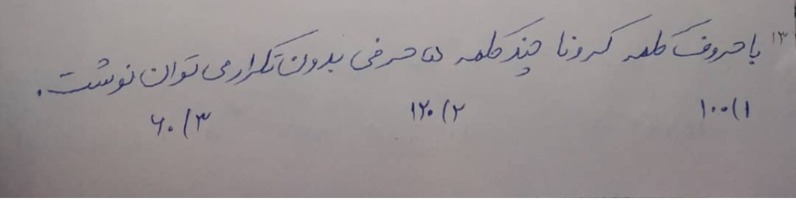 ۱۳ با حروف کلمه کرونا چند کلمه ۵ حرفی بدون تکرار می توان نوشت.
۱) ۱۰۰ ۲) ۱۲۰ ۳) ۶۰